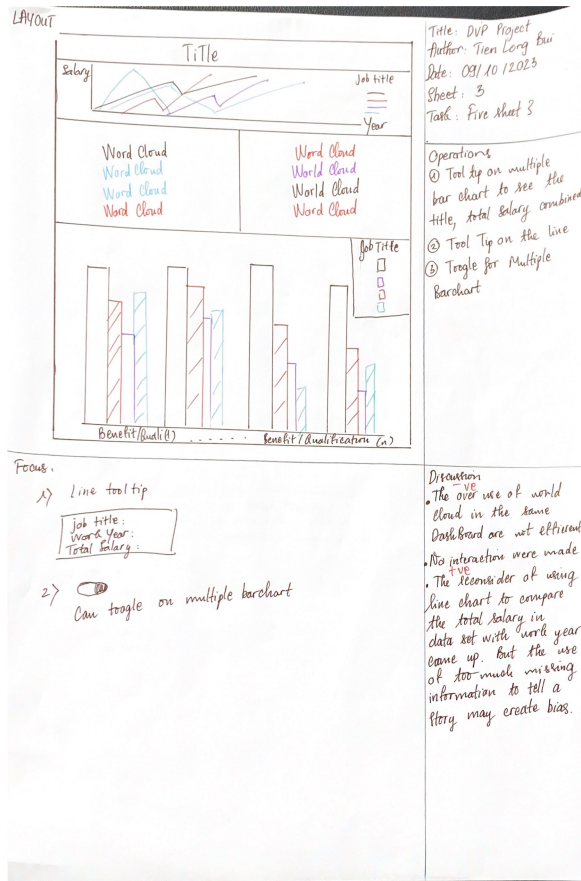 LAYOUT
Title
Salary
Job title
Year
Word Cloud
Word Cloud
Word Cloud
Word Cloud
Word Cloud
World Cloud
World Cloud
Word Cloud
Job Title
Benefit/Quali(1)
.......
Benefit/Qualification (n)
Title: DVP Project
Author: Tien Long Bui
Date: 09/10/2023
Sheet: 3
Task: Five sheet 3
Operations
① Tool tip on multiple
bar chart to see the
title, total salary combined
② Tool Tip on the line
③ Toogle for Multiple
Barchart
Focus.
1) Line tool tip
job title:
Work Year:
Total Salary:
2)
Can toogle on multiple barchart
Discussion
-ve
. The over use of world
cloud in the same
DashBoard are not efficient
. No interaction were made
+ve
. The reconsider of using
line chart to compare
the total salary in
data set with work year
came up. But the use
of too much missing
information to tell a
story may create bias.